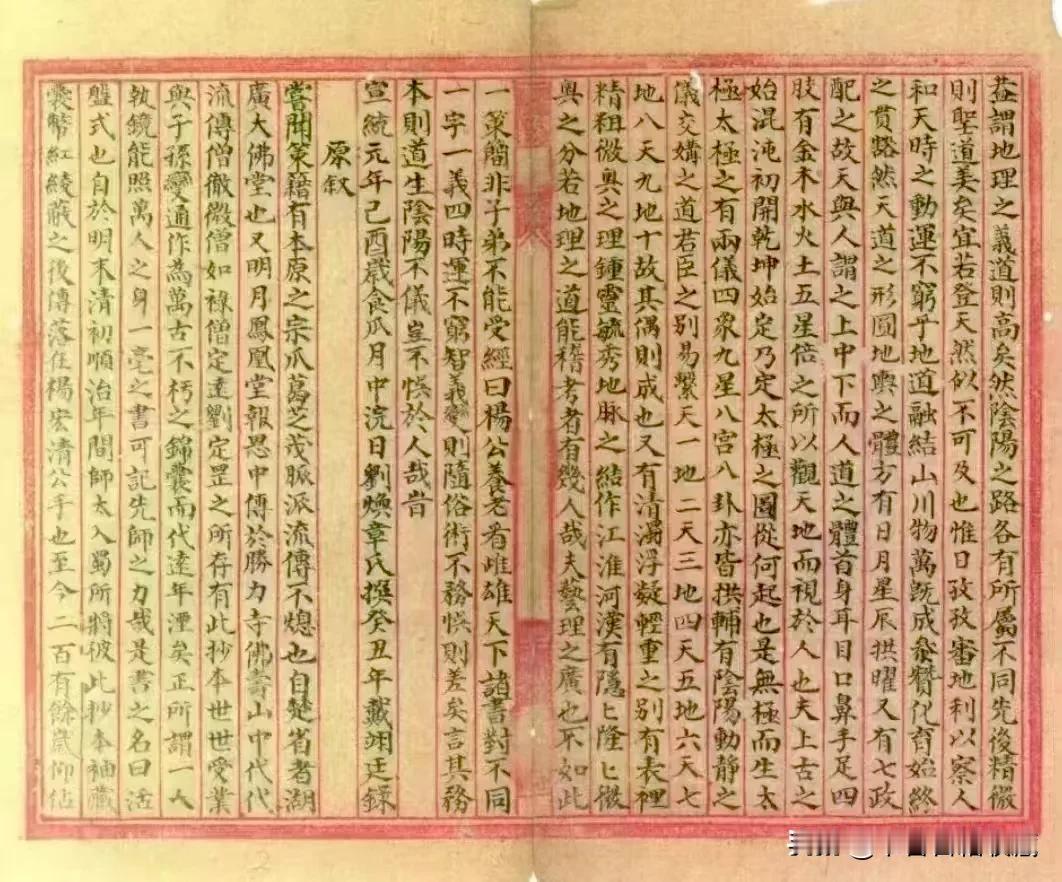 葢謂地理之義道則高矣然陰陽之路各有所屬不同先後精微
則聖道美矣宜若登天然似不可及也惟日孜孜審地利以察人
和天時之動運不窮乎地道融結山川物萬既成叅贊化育始終
之貫豁然天道之形圓地輿之體方有日月星辰拱曜又有七政
配之故天與人謂之上中下而人道之體首身耳目口鼻手足四
肢有金木水火土五星倍之所以觀天地而視於人也夫上古之
始混沌初開乾坤始定乃定太極之圖從何起也是無極而生太
極太極之有兩儀四象九星八宮八卦亦皆拱輔有陰陽動靜之
儀交媾之道君臣之別易繫天一地二天三地四天五地六天七
地八天九地十故其偶則成也又有清濁浮凝輕重之別有表裡
精粗微奧之理鍾靈毓秀地脉之結作江淮河漢有隱匕隆匕微
奧之分若地理之道能稽考者有幾人哉夫藝理之廣也不如此
一策簡非子弟不能受經曰楊公養老看雌雄天下諸書對不同
一字一義四時運不窮智義變則隨俗術不務悞則差矣言其務
本則道生陰陽不儀豈不悞於人哉旹
宣統元年己酉歲食瓜月中浣日劉煥章氏撰癸丑年戴翊廷錄
原叙
嘗聞策籍有本原之宗瓜葛芝茂脈派流傳不熄也自楚省者湖
廣大佛堂也又明月鳳凰堂報恩中傳於勝力寺佛壽山中代代
流傳僧徹微僧如祿僧定達劉定罡之所存有此抄本世世受業
與子孫變通作為萬古不朽之錦囊而代達年湮矣正所謂一人
執鏡能照萬人之身一毫之書可記先師之力哉是書之名曰活
盤式也自於明末清初順治年間師太入蜀所將被此抄本袖藏
囊幣紅綾蔽之後傳落在楊宏清公手也至今二百有餘歲仰佔